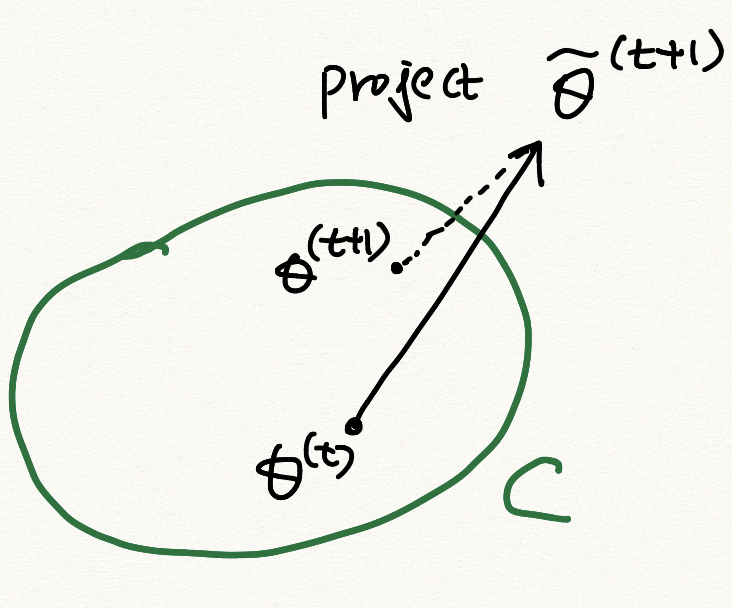 project θ̃^(t+1)
θ^(t+1)
θ^(t)
C